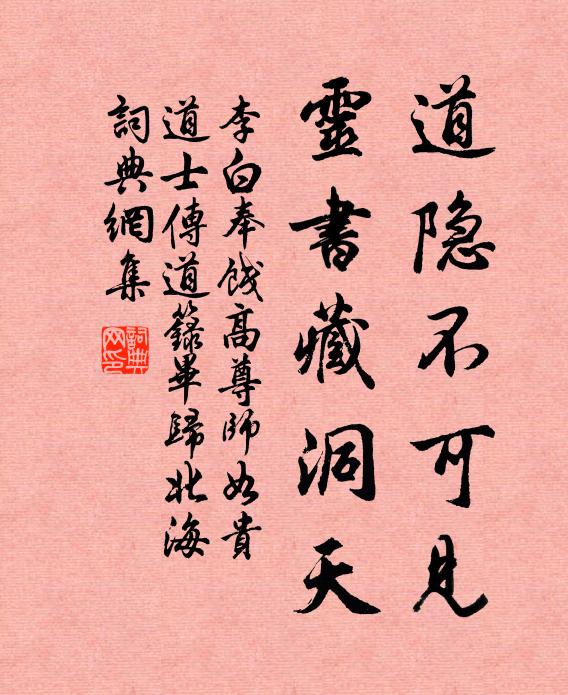 道隐不可見
靈書藏洞天
李白奉餞高尊師如貴
道士傳道籙畢歸北海
詞典網集
詞典網印